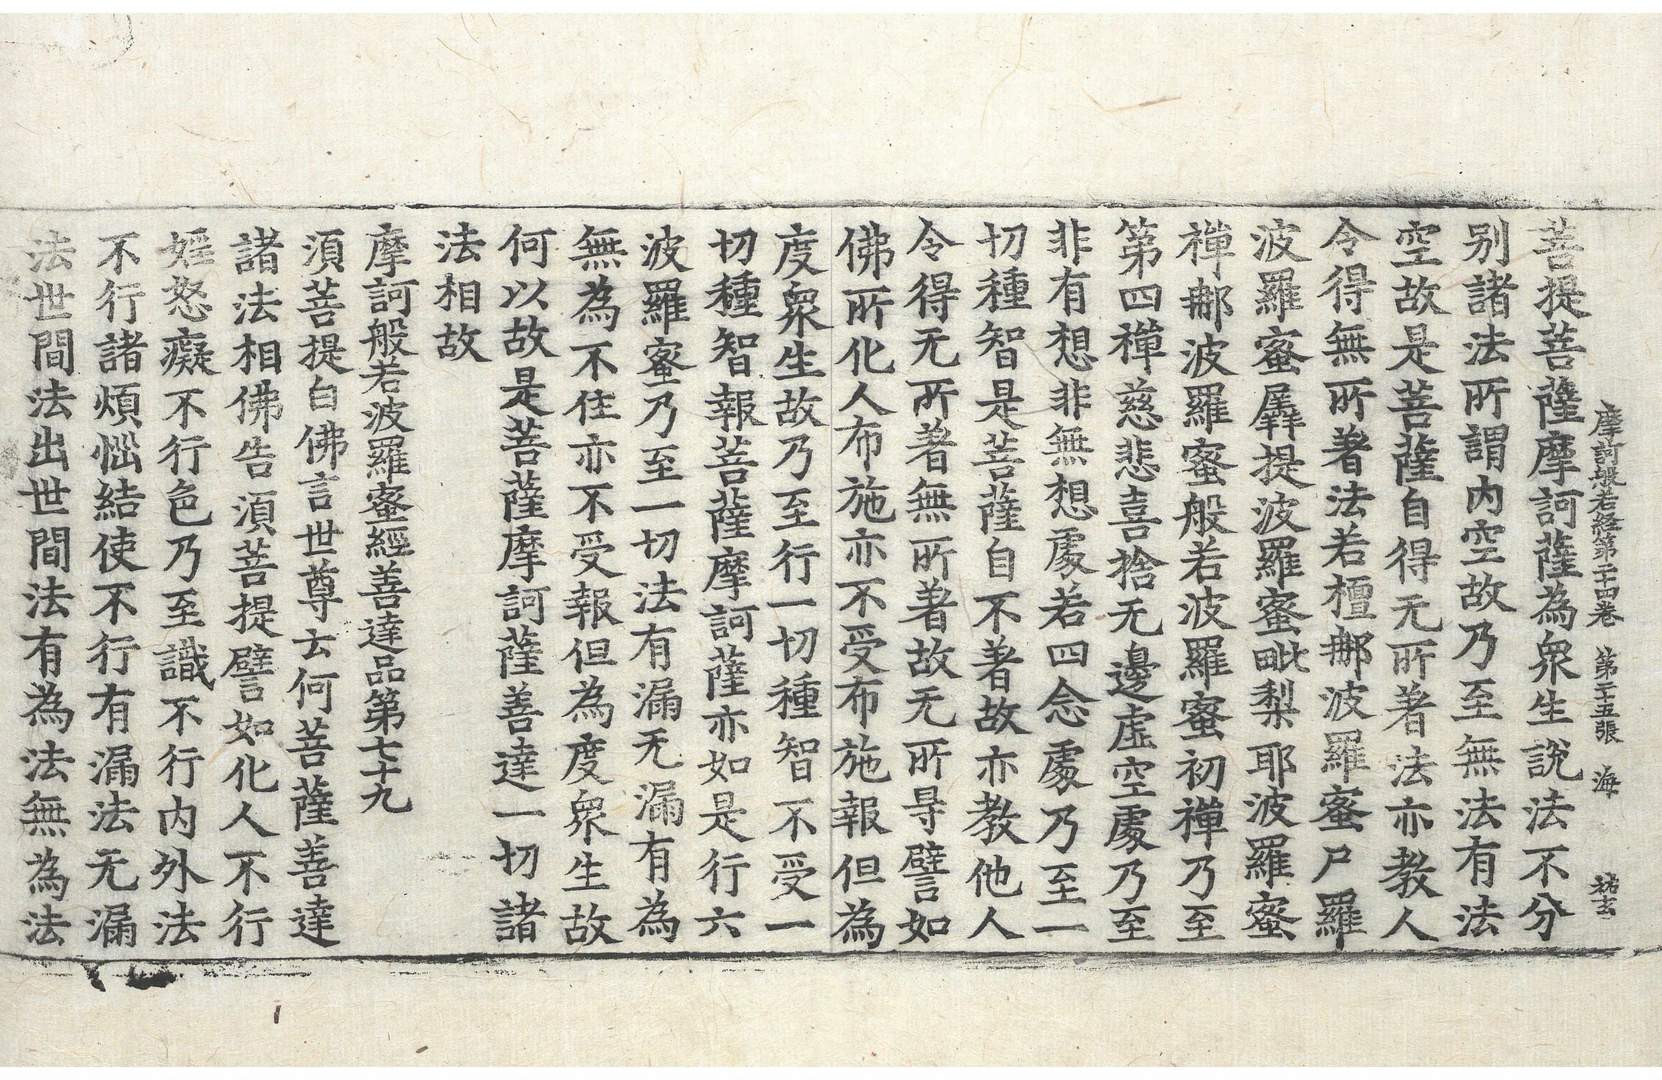 摩訶般若経第二十四卷　第二十五張　海　祐玄
菩提菩薩摩訶薩為衆生說法不分
別諸法所謂內空故乃至無法有法
空故是菩薩自得无所著法亦教人
令得無所著法若檀那波羅蜜尸羅
波羅蜜羼提波羅蜜毗梨耶波羅蜜
禪那波羅蜜般若波羅蜜初禪乃至
第四禪慈悲喜捨无邊虛空處乃至
非有想非無想處若四念處乃至一
切種智是菩薩自不著故亦教他人
令得无所著無所著故无所㝵譬如
佛所化人布施亦不受布施報但為
度衆生故乃至行一切種智不受一
切種智報菩薩摩訶薩亦如是行六
波羅蜜乃至一切法有漏无漏有為
無為不住亦不受報但為度衆生故
何以故是菩薩摩訶薩善達一切諸
法相故
摩訶般若波羅蜜經善達品第七十九
須菩提白佛言世尊云何菩薩善達
諸法相佛告須菩提譬如化人不行
婬怒癡不行色乃至識不行內外法
不行諸煩惱結使不行有漏法无漏
法世間法出世間法有為法無為法